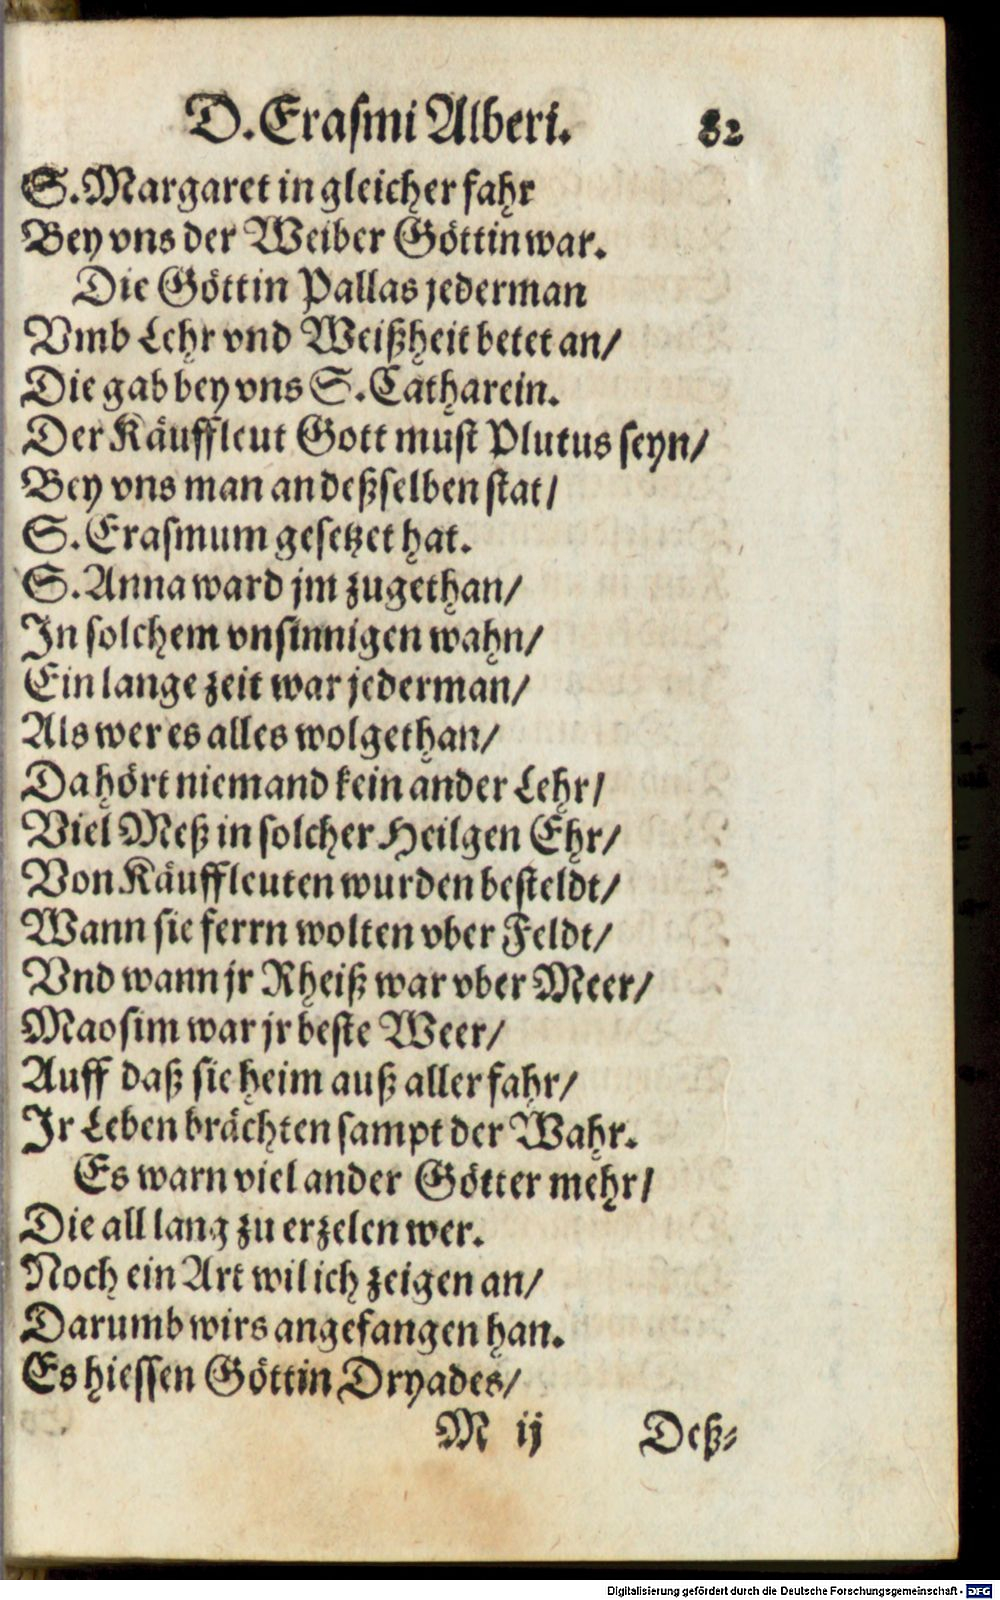 D. Erasmi Alberi. 82
S. Margaret in gleicher fahr
Bey vns der Weiber Göttin war.
Die Göttin Pallas jederman
Vmb Lehr vnd Weißheit betet an/
Die gab bey vns S. Catharein.
Der Käuffleut Gott must Plutus seyn/
Bey vns man an deßselben stat/
S. Erasmum gesetzet hat.
S. Anna ward jm zugethan/
In solchem vnsinnigen wahn/
Ein lange zeit war jederman/
Als wer es alles wolgethan/
Da hört niemand kein ander Lehr/
Viel Meß in solcher Heilgen Ehr/
Von Käuffleuten wurden besteldt/
Wann sie ferrn wolten vber Feldt/
Vnd wann jr Rheiß war vber Meer/
Maosim war jr beste Weer/
Auff daß sie heim auß aller fahr/
Ir Leben brächten sampt der Wahr.
Es warn viel ander Götter mehr/
Die all lang zu erzelen wer.
Noch ein Art wil ich zeigen an/
Darumb wirs angefangen han.
Es hiessen Göttin Dryades/
M ij Deß-
Digitalisierung gefördert durch die Deutsche Forschungsgemeinschaft - DFG